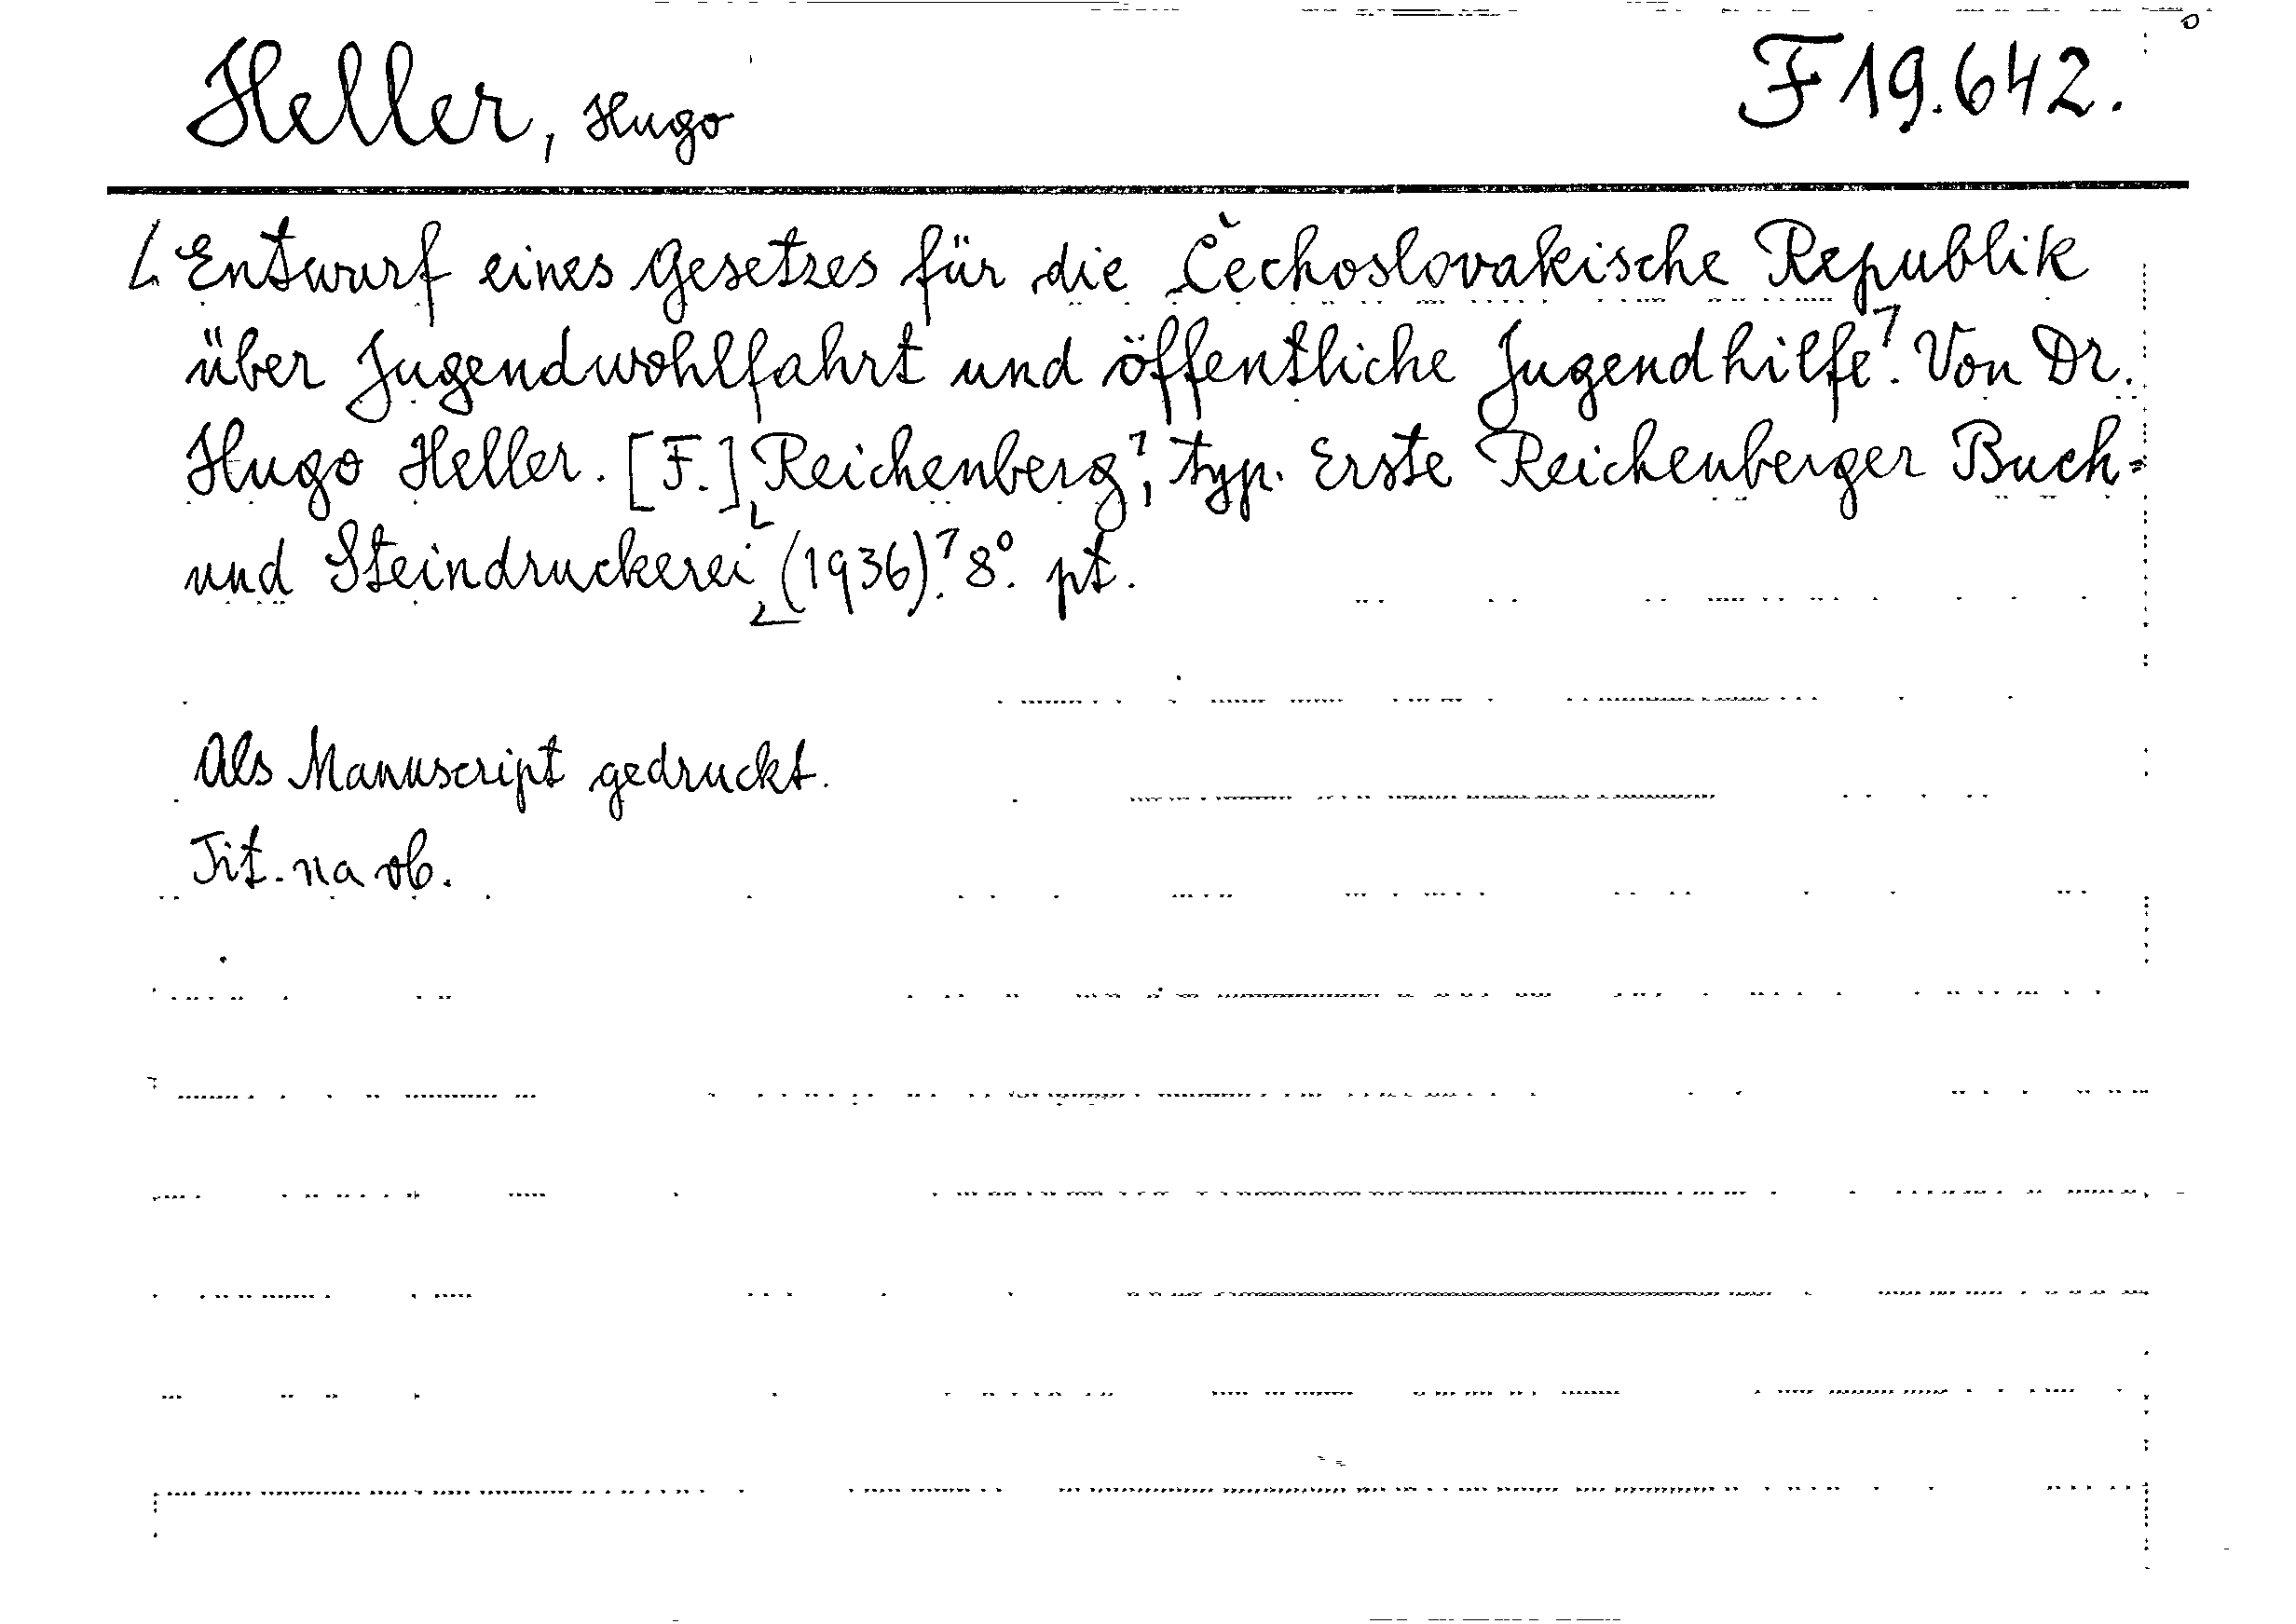 Heller, Hugo F 19.642.
Entwurf eines Gesetzes für die Čechoslovakische Republik
über Jugendwohlfahrt und öffentliche Jugendhilfe. Von Dr.
Hugo Heller. [F.] Reichenberg, typ. Erste Reichenberger Buch-
und Steindruckerei (1936). 8°. pt.
Als Manuscript gedruckt.
Tit. na ob.